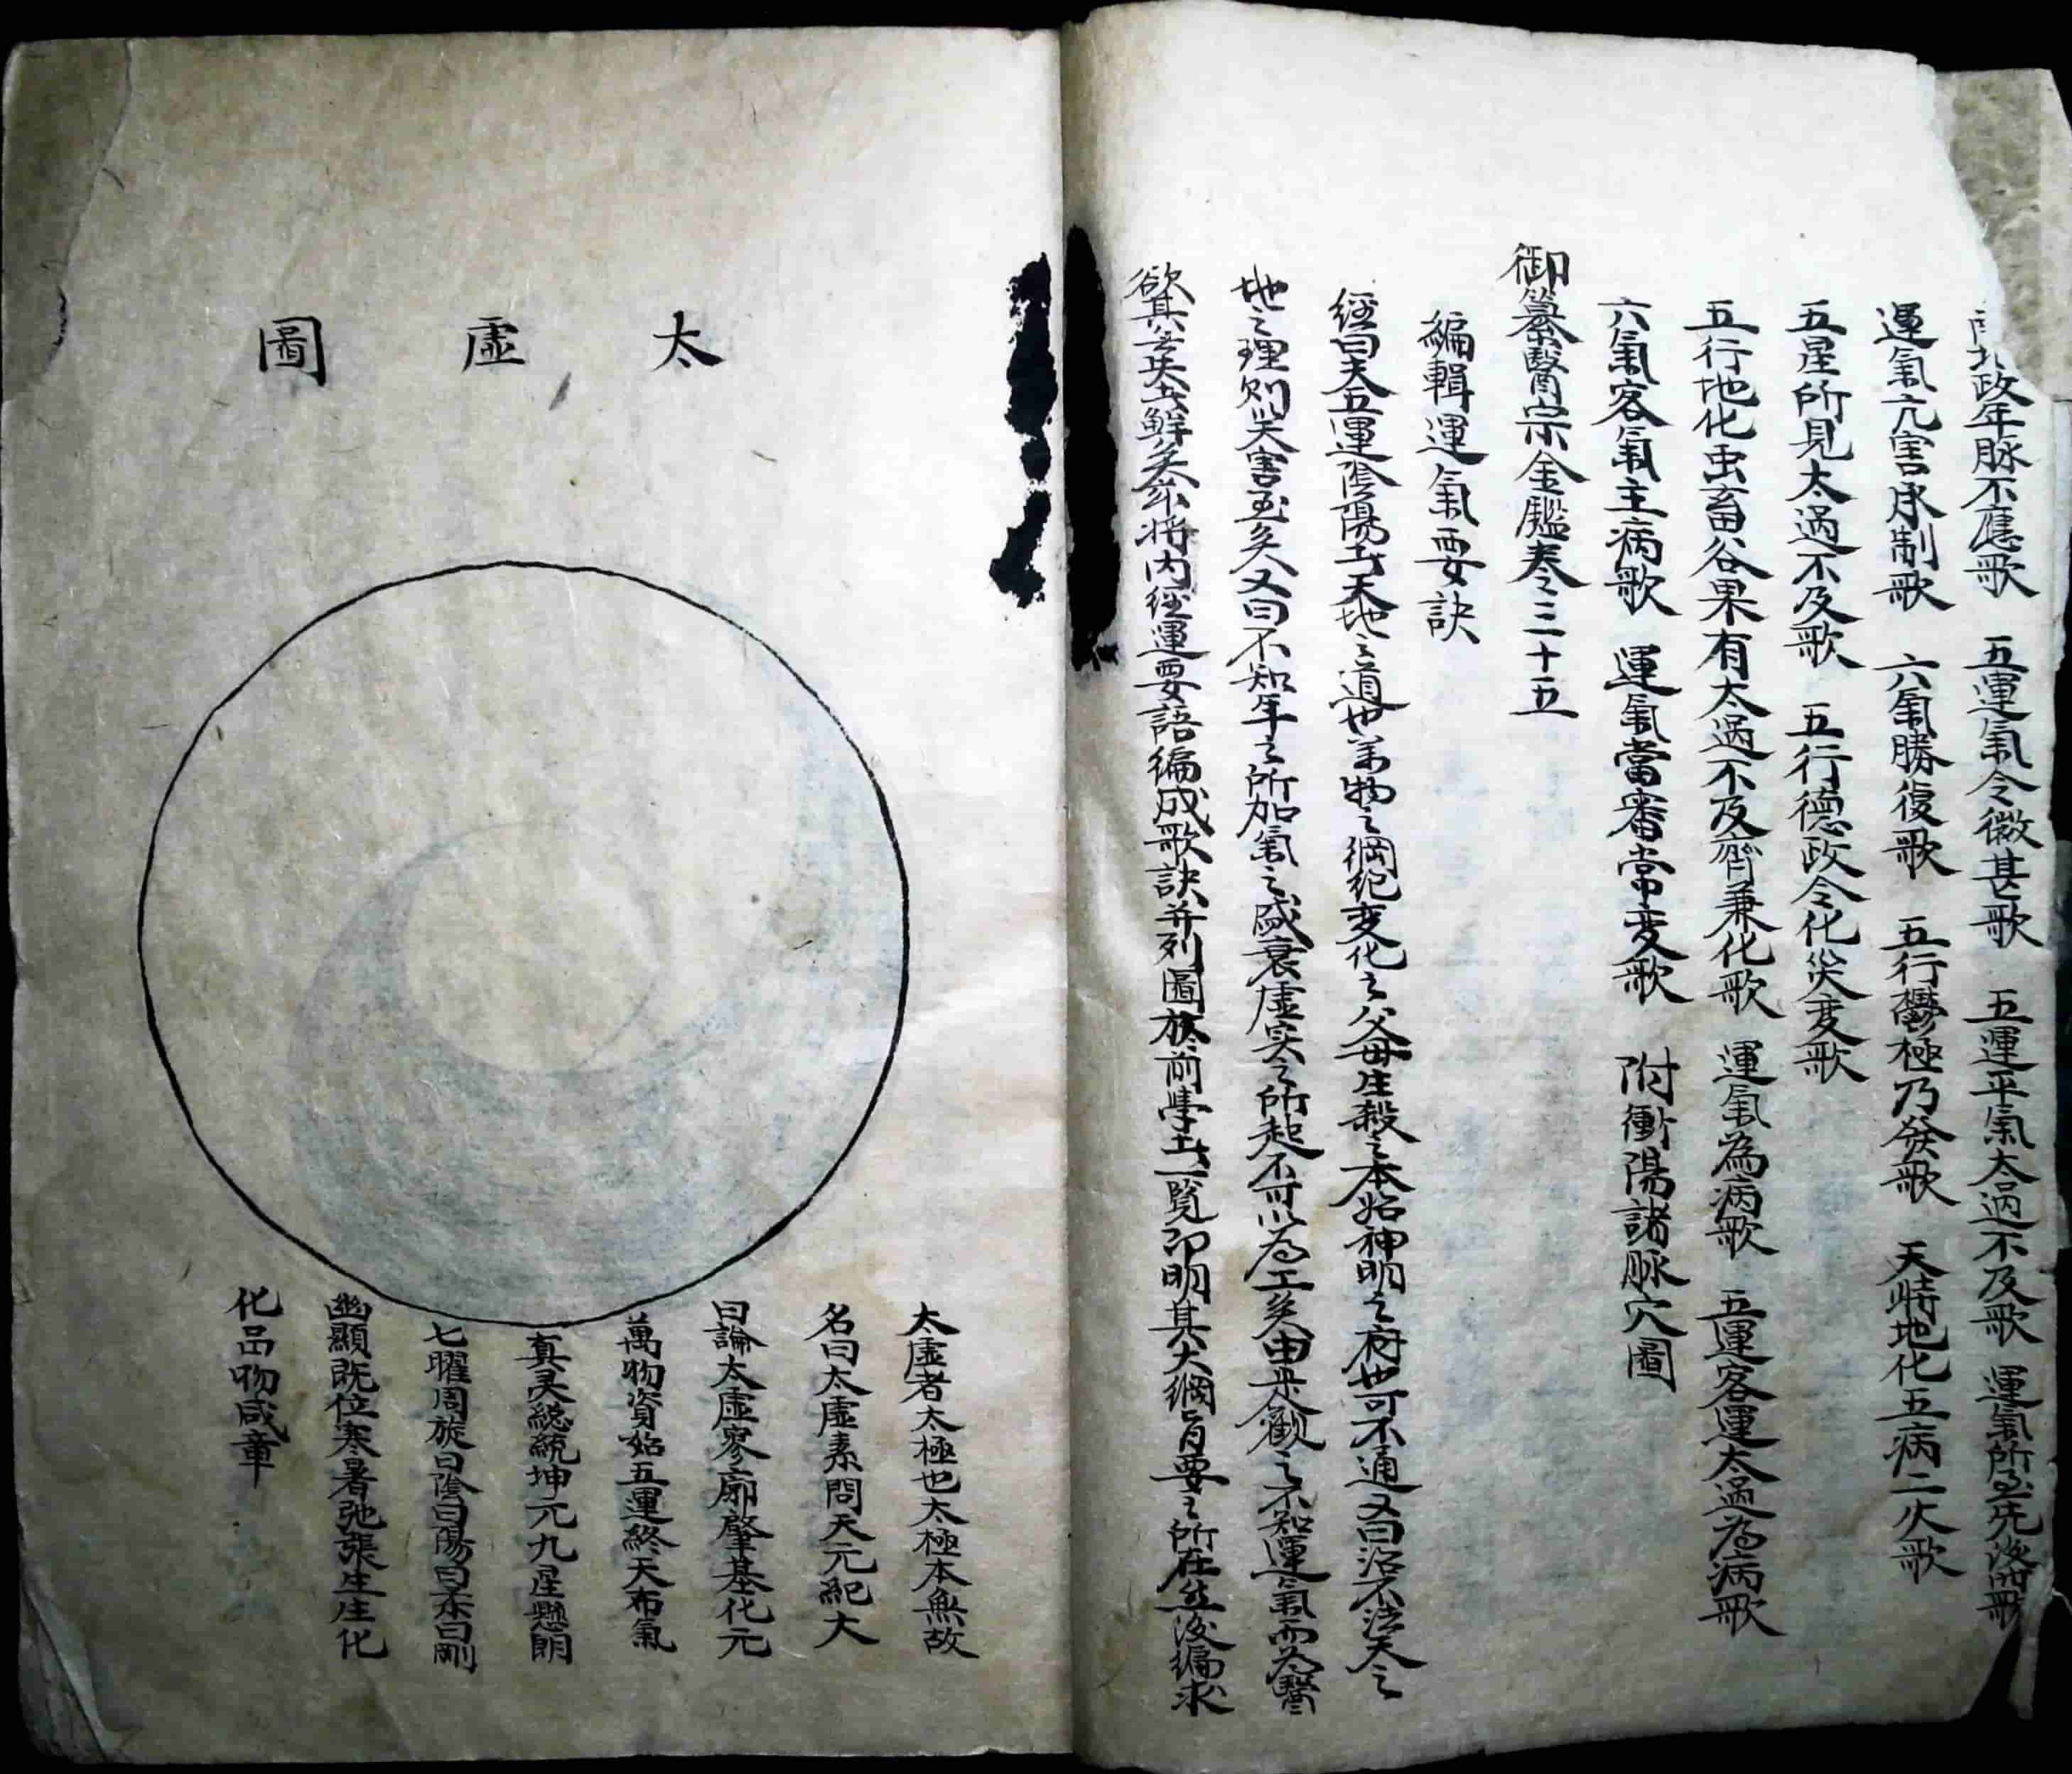 南北政年脉不應歌　五運氣令微甚歌　五運平氣太過不及歌　運氣所至先後時歌
運氣亢害承制歌　六氣勝復歌　五行鬱極乃發歌　天時地化五病二火歌
五星所見太過不及歌　五行德政令化災変歌
五行地化虫畜谷果有太過不及齊兼化歌　運氣為病歌　五運客運太過為病歌
六氣客氣主病歌　運氣當審常変歌　附衝陽諸脉穴圖
御纂醫宗金鑑卷三十五
編輯運氣要訣
經曰夫五運陰陽者天地之道也萬物之綱紀変化之父母生殺之本始神明之府也可不通又曰治不法天之
地之理則災害至矣又曰不知年之所加氣之盛衰虛实之所起不可以為工矣由是觀之不知運氣而為醫
欲其無失者鮮矣茲將内經運要語編成歌訣并列圖於前學者一覧即明其大綱旨要之所在然後編求
太虛圖
太虛者太極也太極本無故
名曰太虛素問天元紀大
曰論太虛寥廓肇基化元
萬物資始五運終天布氣
真灵總統坤元九星懸朗
七曜周旋曰陰曰陽曰柔曰剛
幽顯既位寒暑弛張生生化
化品物咸章